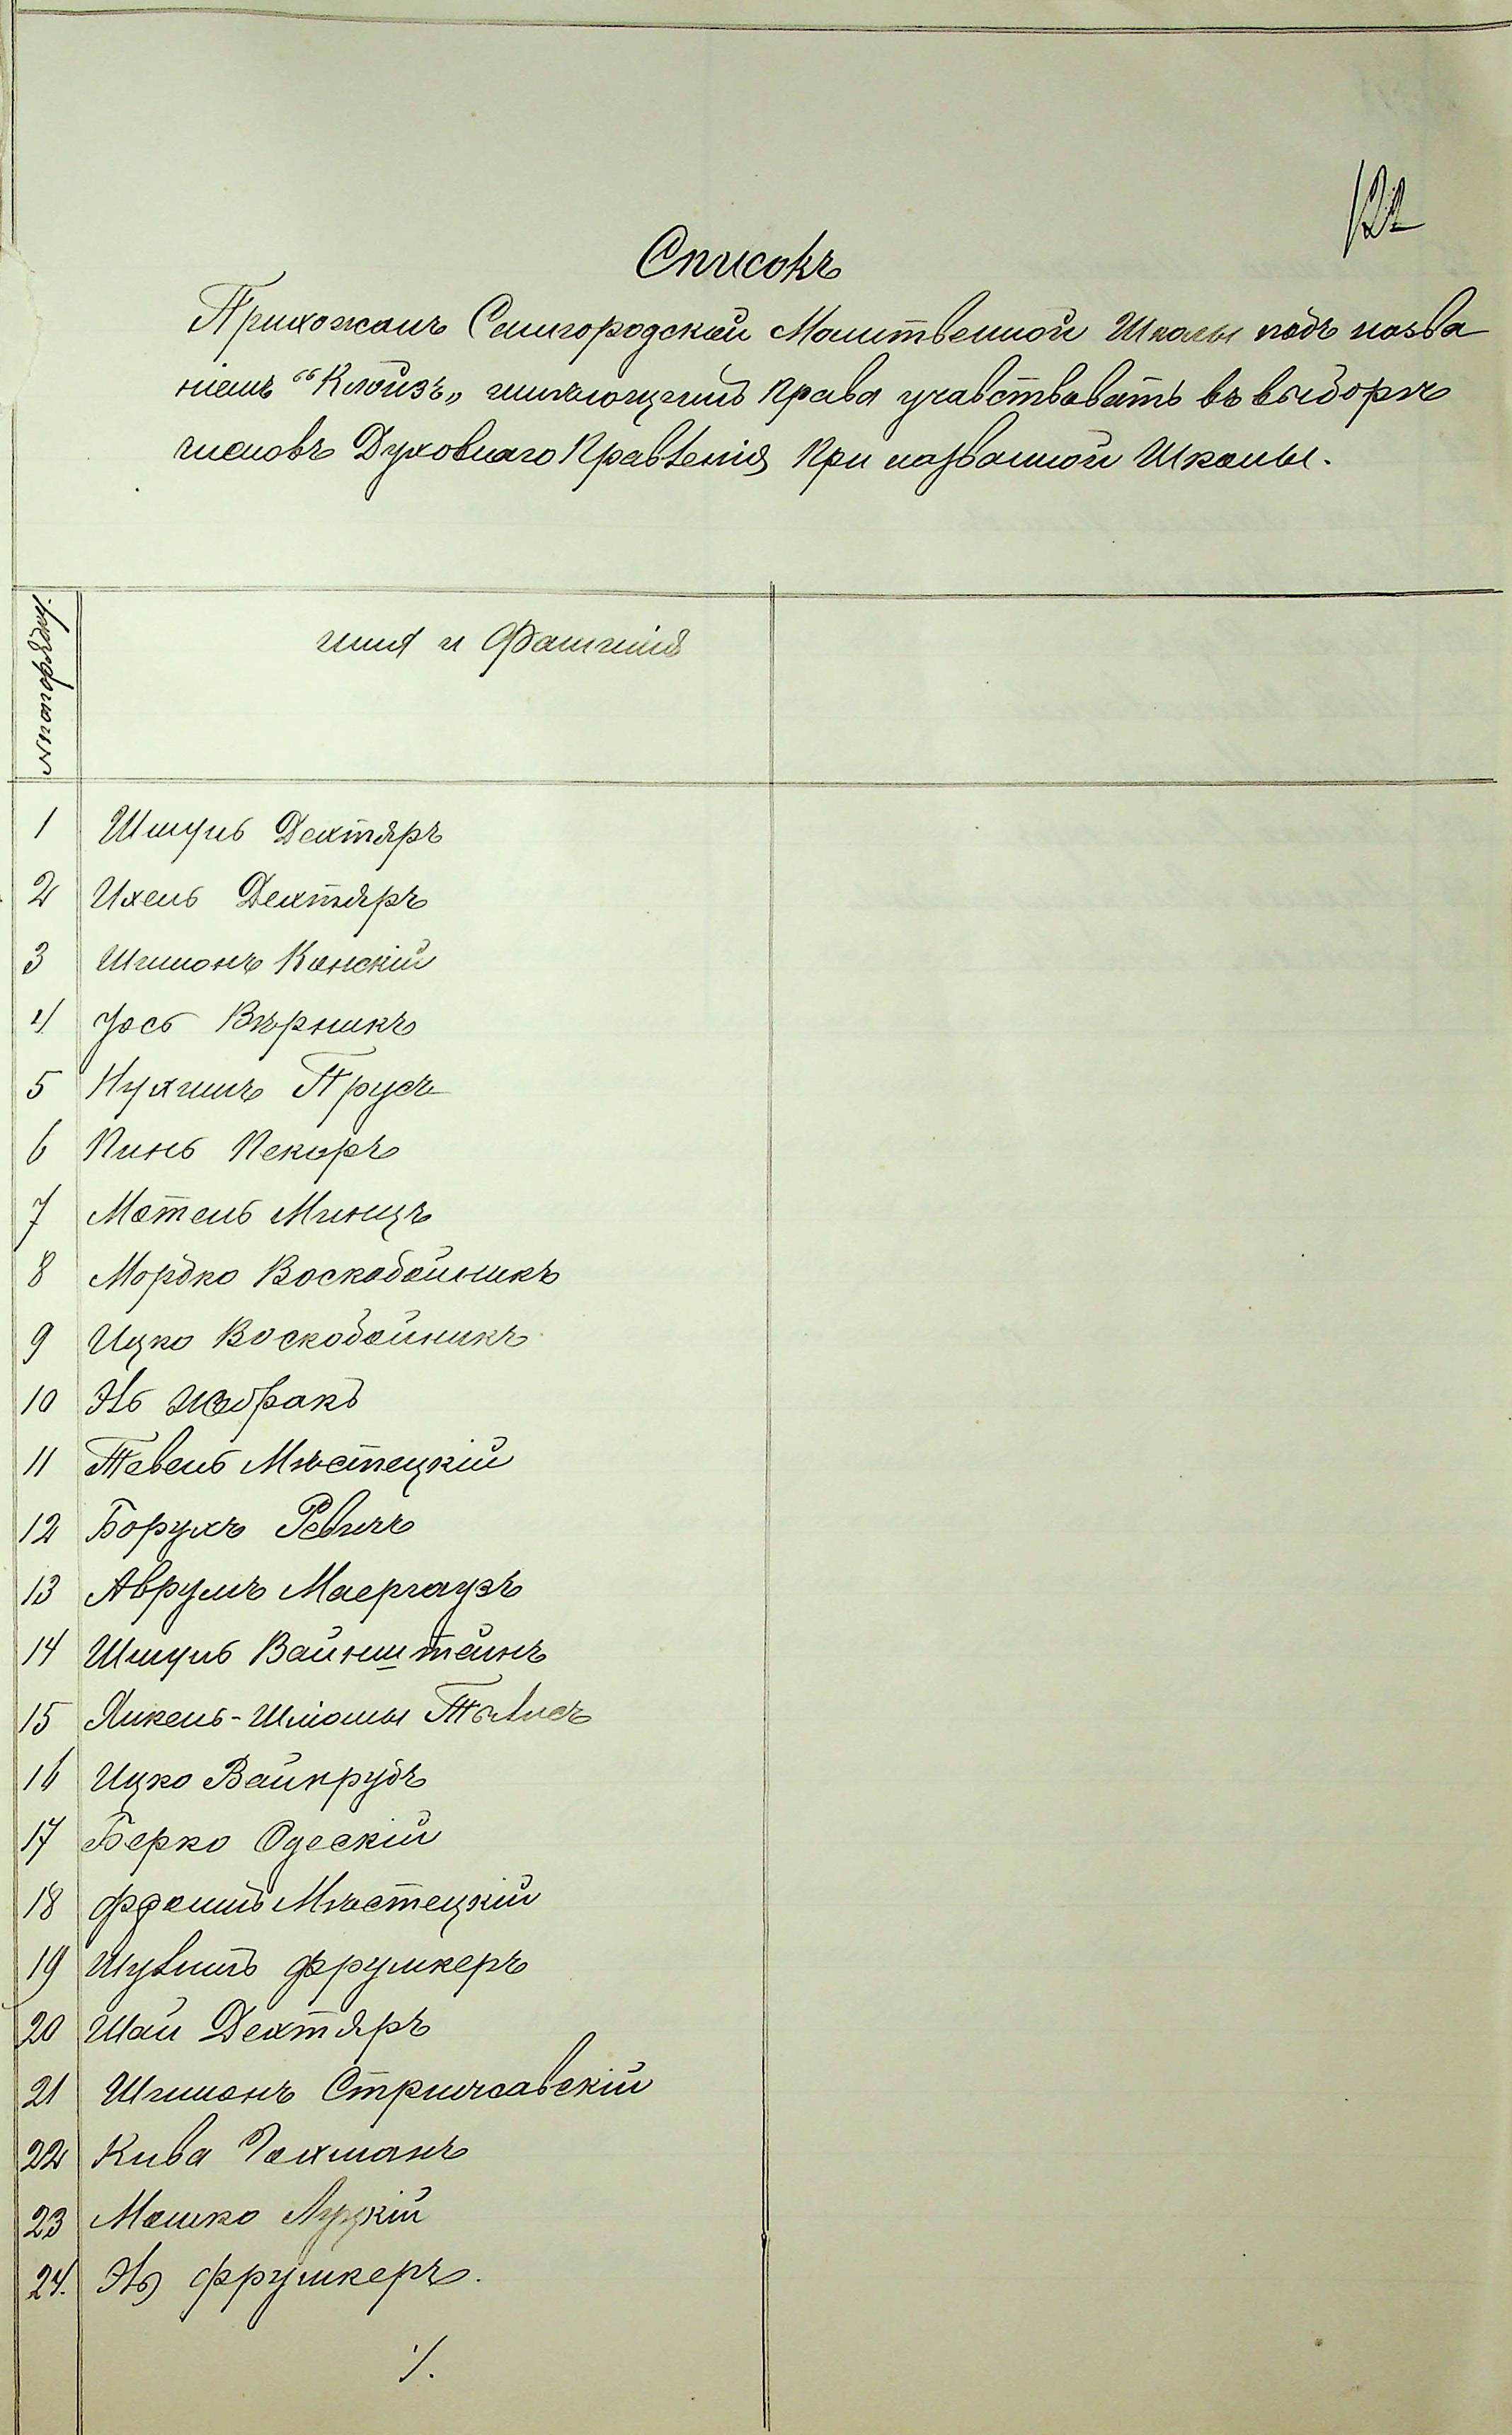 122
Списокъ
Прихожанъ Самгородской Молитвенной Школы подъ назва
ніемъ "Клойзъ„ имѣющихъ права учавствовать въ выборѣ
членовъ Духовнаго Правленія при названной Школы.
имя и Фамилія
1 Шмуль Дехтяръ
2 Ихель Дехтяръ
3 Шимонъ Канскій
4 Іось Вѣрникъ
5 Нухимъ Прусъ
6 Пинь Пекаръ
7 Мотель Минцъ
8 Мордко Воскобойникъ
9 Ицко Воскобойникъ
10 Жебракъ
11 Тевель Мястецкій
12 Борухъ Ревичъ
13 Аврумъ Маергаузъ
14 Шмуль Вайнштейнъ
15 Янкель-Шліомы
16 Ицко Вайнрубъ
17 Берко Одескій
18 Фроимъ Мястецкій
19 Фрумкеръ
20 Шаи Дехтяръ
21 Шимонъ Стрижавскій
22 Кива Гохманъ
23 Мошко Луцкій
24. Фрумкеръ.
./.